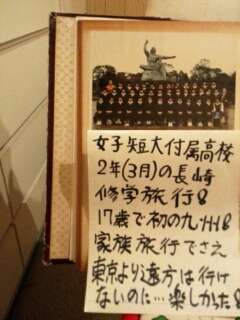 女子短大付属高校
2年(3月)の長崎
修学旅行8
17歳で初の九州8
家族旅行でさえ
東京より遠方は行け
ないのに…楽しかった8